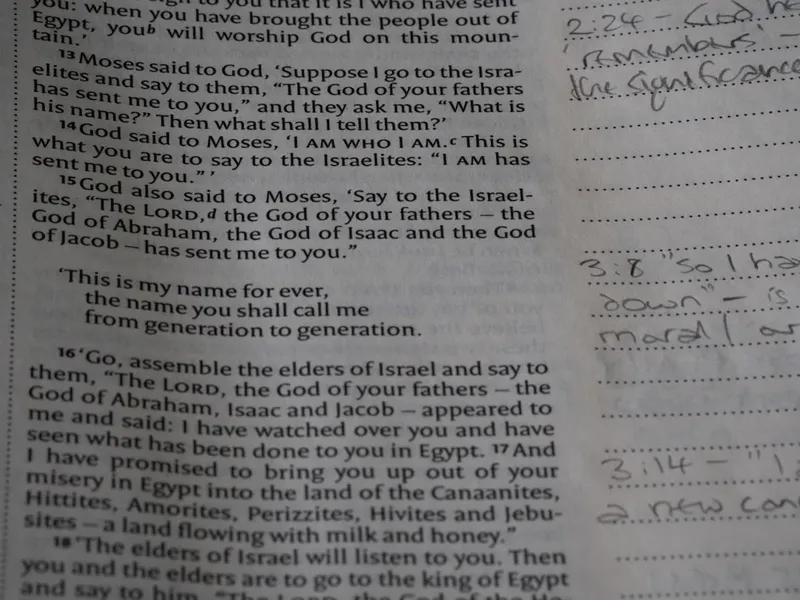 you: when you have brought the people out of
Egypt, youb will worship God on this moun-
tain.’
13 Moses said to God, ‘Suppose I go to the Isra-
elites and say to them, “The God of your fathers
has sent me to you,” and they ask me, “What is
his name?” Then what shall I tell them?’
14 God said to Moses, ‘I AM WHO I AM.c This is
what you are to say to the Israelites: “I AM has
sent me to you.” ’
15 God also said to Moses, ‘Say to the Israel-
ites, “The LORD,d the God of your fathers – the
God of Abraham, the God of Isaac and the God
of Jacob – has sent me to you.”
‘This is my name for ever,
the name you shall call me
from generation to generation.
16 ‘Go, assemble the elders of Israel and say to
them, “The LORD, the God of your fathers – the
God of Abraham, Isaac and Jacob – appeared to
me and said: I have watched over you and have
seen what has been done to you in Egypt. 17 And
I have promised to bring you up out of your
misery in Egypt into the land of the Canaanites,
Hittites, Amorites, Perizzites, Hivites and Jebu-
sites – a land flowing with milk and honey.”
18 ‘The elders of Israel will listen to you. Then
you and the elders are to go to the king of Egypt
and say to him, “The LORD, the God of the He-
2:24 – God he
‘remembers’ –
the significance
3:8 “so I ha
down” – is
moral / ar
3:14 – “I
a new con